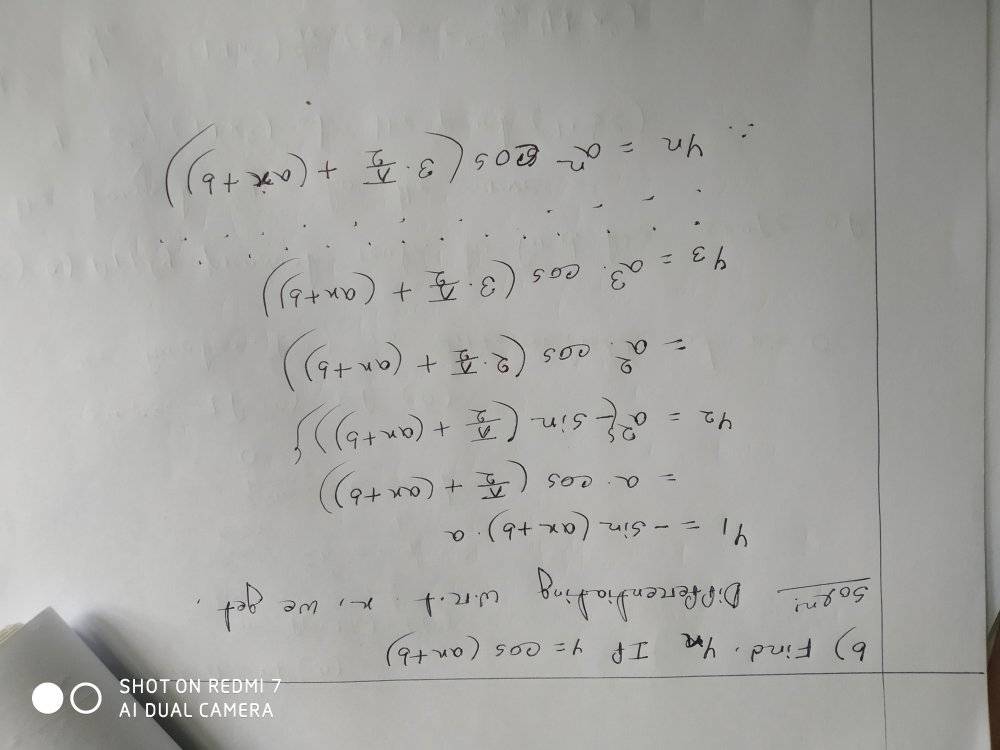 SHOT ON REDMI 7
AI DUAL CAMERA
b) Find. yn If y = cos (ax+b)
Solⁿ: Differentiating w.r.t x, we get.
y₁ = - sin (ax+b) · a
= a · cos (π/2 + (ax+b))
y₂ = a²{- sin (π/2 + (ax+b))}
= a² · cos (2 · π/2 + (ax+b))
y₃ = a³ · cos (3 · π/2 + (ax+b))
∴ yn = aⁿ cos (3 · π/2 + (ax+b))